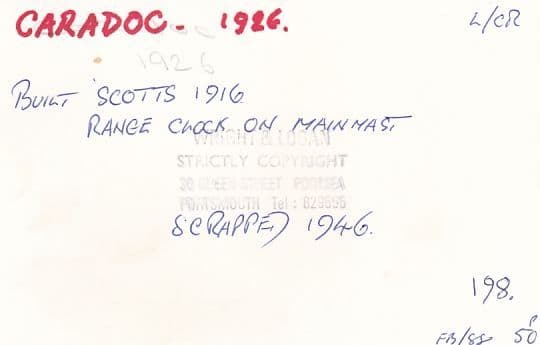 CARADOC - 1926.
L/CR
1926
BUILT SCOTTS 1916
RANGE CLOCK ON MAINMAST
WRIGHT & LOGAN
STRICTLY COPYRIGHT
20 QUEEN STREET PORTSEA
PORTSMOUTH Tel: 829555
SCRAPPED 1946.
198.
FB/SS 50P